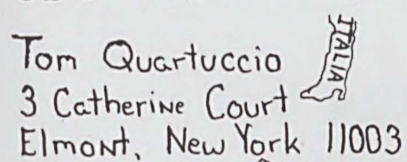 Tom Quartuccio
ITALIA
3 Catherine Court
Elmont, New York 11003